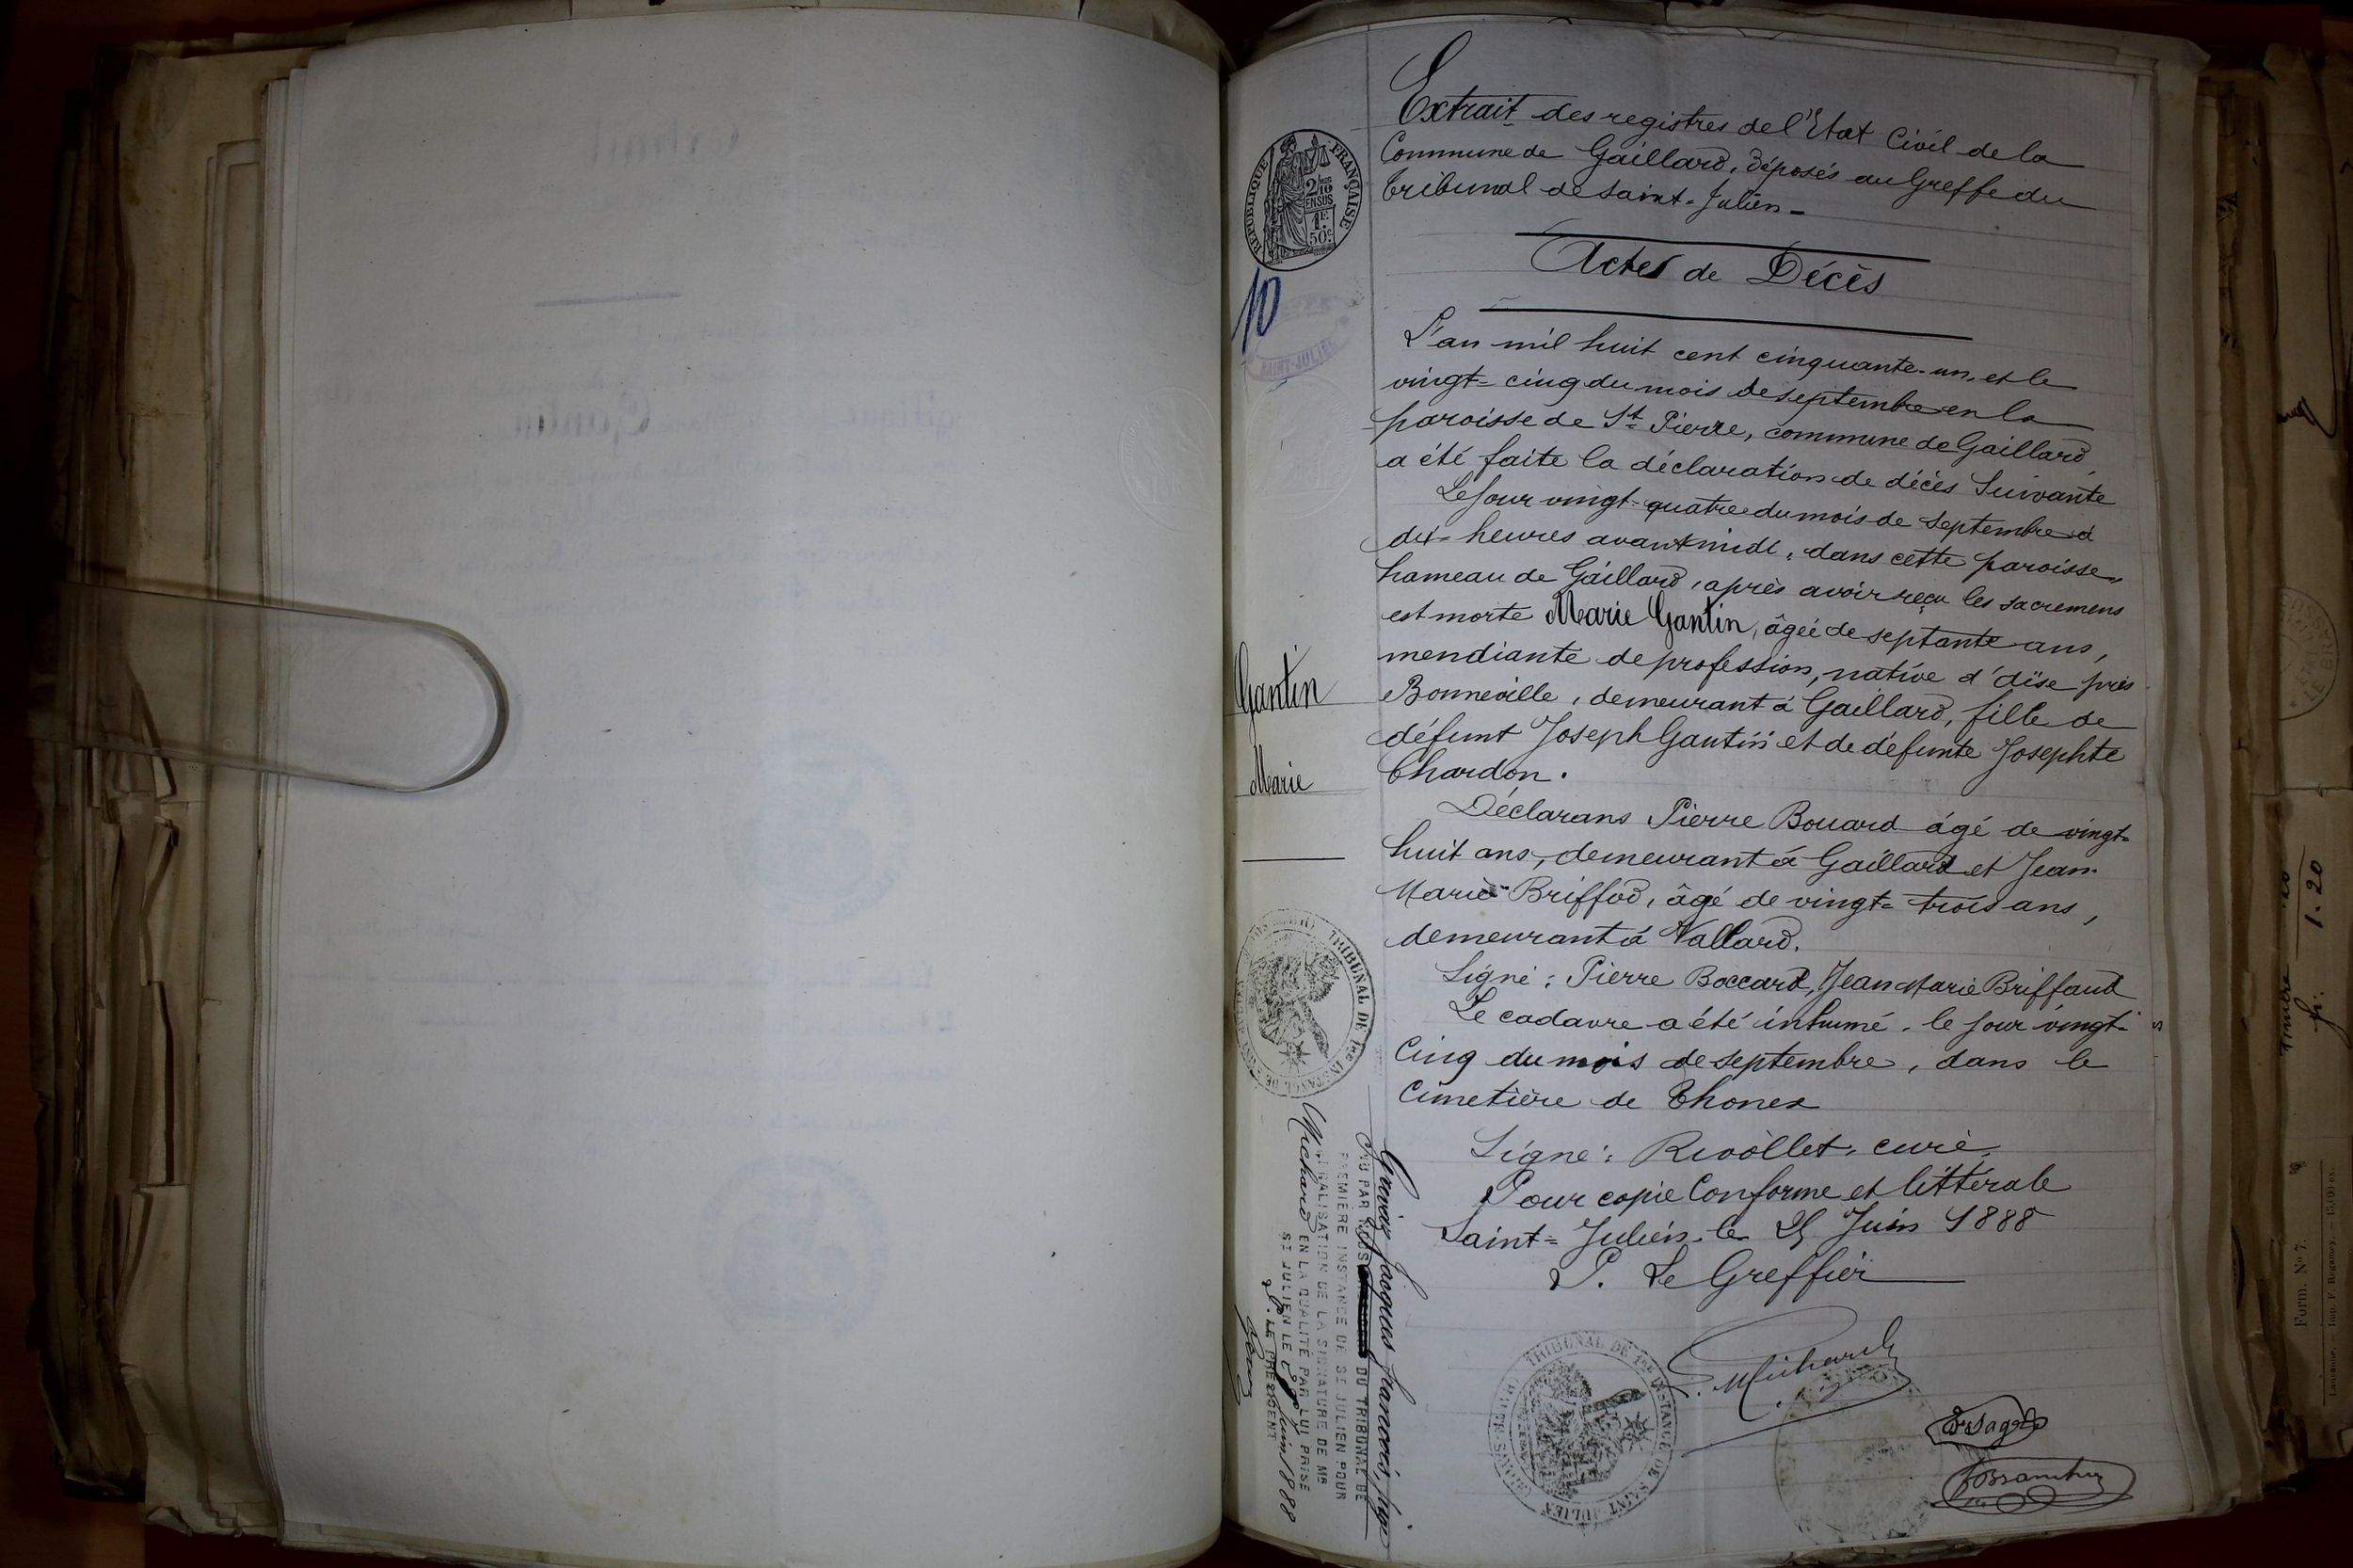 Extrait des registres de l'Etat Civil de la
Commune de Gaillard, déposés au Greffe du
tribunal de Saint-Julien-
Actes de Décès
L'an mil huit cent cinquante-un, et le
vingt-cinq du mois de septembre en la
paroisse de St Pierre, commune de Gaillard
a été faite la déclaration de décès Suivante
Le jour vingt-quatre du mois de septembre à
dix-heures avant midi, dans cette paroisse,
hameau de Gaillard, après avoir reçu les sacremens
est morte Marie Gantin, âgée de septante ans,
mendiante de profession, native d'aïse près
Bonneville, demeurant à Gaillard, fille de
défunt Joseph Gantin et de défunte Josephte
Chardon.
Déclarans Pierre Bouard âgé de vingt-
huit ans, demeurant à Gaillard et Jean-
Marie Briffod, âgé de vingt-trois ans,
demeurant à Vallard.
Signé: Pierre Boccard, Jean Marie Briffaud
Le cadavre a été inhumé, le jour vingt-
Cinq du mois de septembre, dans le
Cimetière de Thonex
Signé: Rivollet, curé.
Pour copie Conforme et littérale
Saint-Julien, le 25 Juin 1888
P. Le Greffier
Michard
RÉPUBLIQUE FRANÇAISE
2/10 EN SUS
1F. 50c.
10
SAINT-JULIEN
Gantin
Marie
TRIBUNAL DE 1re INSTANCE DE SAINT-JULIEN
Jacques françois, juge
VU PAR NOUS DU TRIBUNAL DE
PREMIÈRE INSTANCE DE ST JULIEN POUR
LÉGALISATION DE LA SIGNATURE DE MR
Michard EN LA QUALITÉ PAR LUI PRISE
ST JULIEN LE Juin 1888
P. LE PRÉSIDENT
TRIBUNAL DE 1re INSTANCE DE SAINT-JULIEN
1.20
Form. No 7.